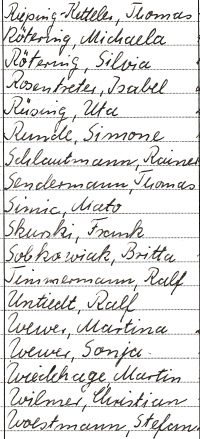 Rieping-Ketteler, Thomas
Rötering, Michaela
Rötering, Silvia
Rosentreter, Isabel
Rüsing, Uta
Runde, Simone
Schlautmann, Rainer
Sendermann, Thomas
Simic, Mato
Skurski, Frank
Sobkowiak, Britta
Timmermann, Ralf
Untiedt, Ralf
Wewer, Martina
Wewer, Sonja
Wiedehage, Martin
Wilmer, Christian
Woestmann, Stefan